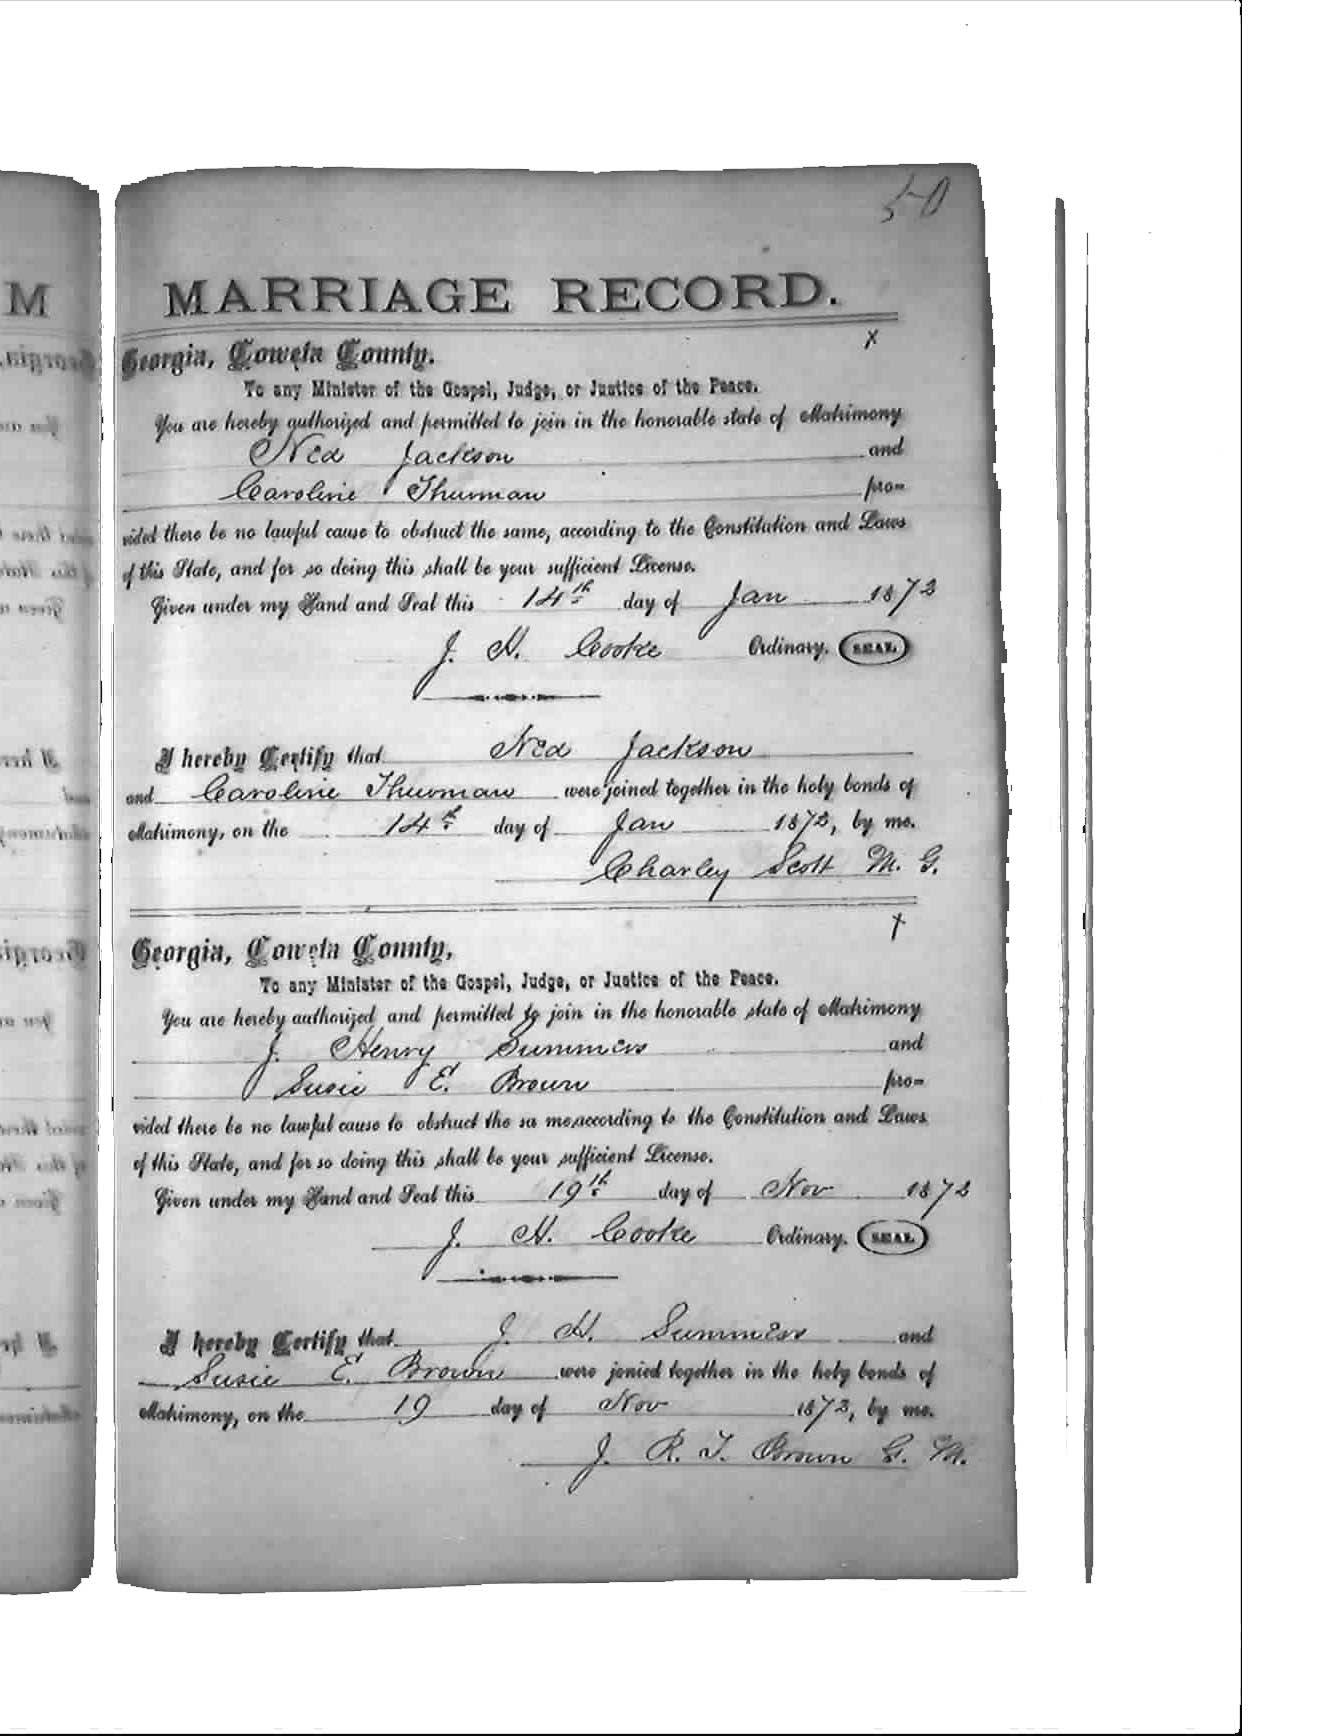 50
M
MARRIAGE RECORD.
x
Georgia, Coweta County.
To any Minister of the Gospel, Judge, or Justice of the Peace.
You are hereby authorized and permitted to join in the honorable state of Matrimony
Ned Jackson and
Caroline Thurman pro=
vided there be no lawful cause to obstruct the same, according to the Constitution and Laws
of this State, and for so doing this shall be your sufficient License.
Given under my Hand and Seal this 14th day of Jan 1873
J. H. Cooke Ordinary. SEAL
I hereby Certify that Ned Jackson
and Caroline Thurman were joined together in the holy bonds of
Matrimony, on the 14th day of Jan 1873, by me.
Charley Scott M. G.
x
Georgia, Coweta County,
To any Minister of the Gospel, Judge, or Justice of the Peace.
You are hereby authorized and permitted to join in the honorable state of Matrimony
J. Henry Summers and
Susie E. Brown pro=
vided there be no lawful cause to obstruct the sa me,according to the Constitution and Laws
of this State, and for so doing this shall be your sufficient License.
Given under my Hand and Seal this 19th day of Nov 1873
J. H. Cooke Ordinary. SEAL
I hereby Certify that J. H. Summers and
Susie E. Brown were jonied together in the holy bonds of
Matrimony, on the 19 day of Nov 1873, by me.
J. R. T. Brown G. M.